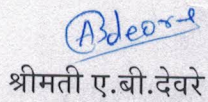 ABdeore
श्रीमती ए.बी.देवरे